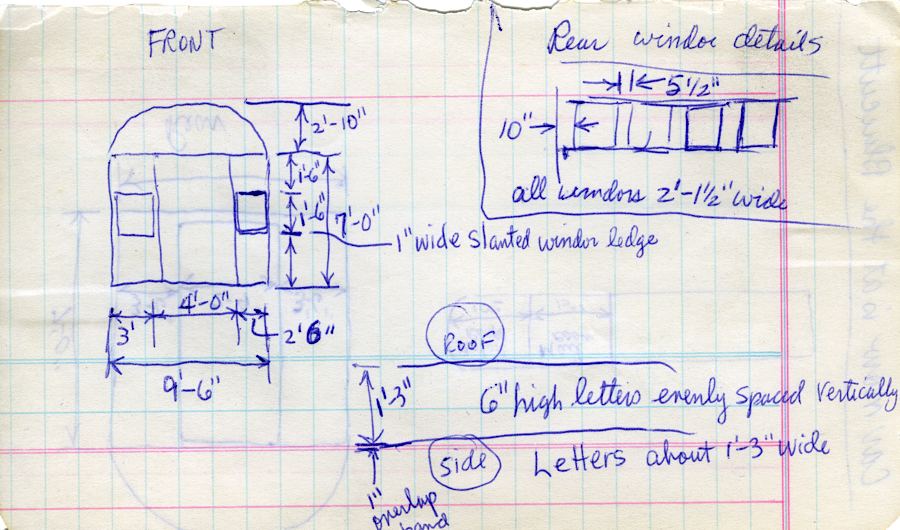 FRONT
Rear windor details
5 1/2"
10"
all windors 2'-1 1/2" wide
2'-10"
1'-6"
1'-6"
7'-0"
1" wide slanted windor ledge
4'-0"
3'
2'6"
9'-6"
ROOF
1'-3"
6" high letters evenly spaced vertically
Side
Letters about 1'-3" wide
1" overlap
band